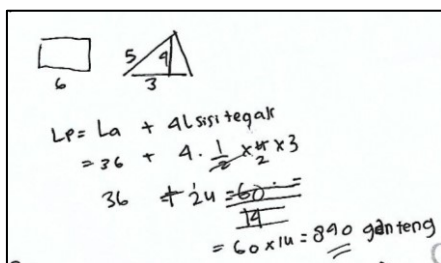 6
5 4
3
Lp = La + 4L sisi tegak
= 36 + 4 . 1/2 × 4/2 × 3
36 + 24 = 60 =
14
= 60 × 14 = 840 ganteng